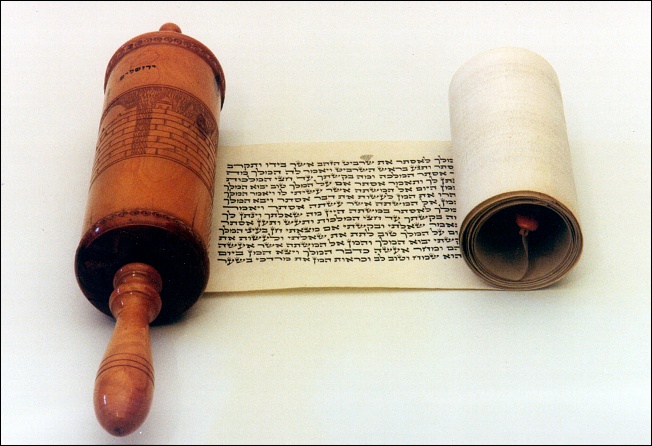 ירושלים
לאסתר את שרביט הזהב אשר בידו ותקרב
ותגע בראש השרביט ויאמר לה המלך מה
אסתר המלכה ומה בקשתך עד חצי המלכות
לך ותאמר אסתר אם על המלך טוב יבוא המלך
היום אל המשתה אשר עשיתי לו ויאמר המלך
את המן לעשות את דבר אסתר ויבא המלך
אל המשתה אשר עשתה אסתר ויאמר
לאסתר במשתה היין מה שאלתך וינתן לך
בקשתך עד חצי המלכות ותעש ותען אסתר
שאלתי ובקשתי אם מצאתי חן בעיני המלך
על המלך טוב לתת את שאלתי ולעשות את
יבוא המלך והמן אל המשתה אשר אעשה
ומחר אעשה כדבר המלך ויצא המן ביום
שמח וטוב לב וכראות המן את מרדכי בשער